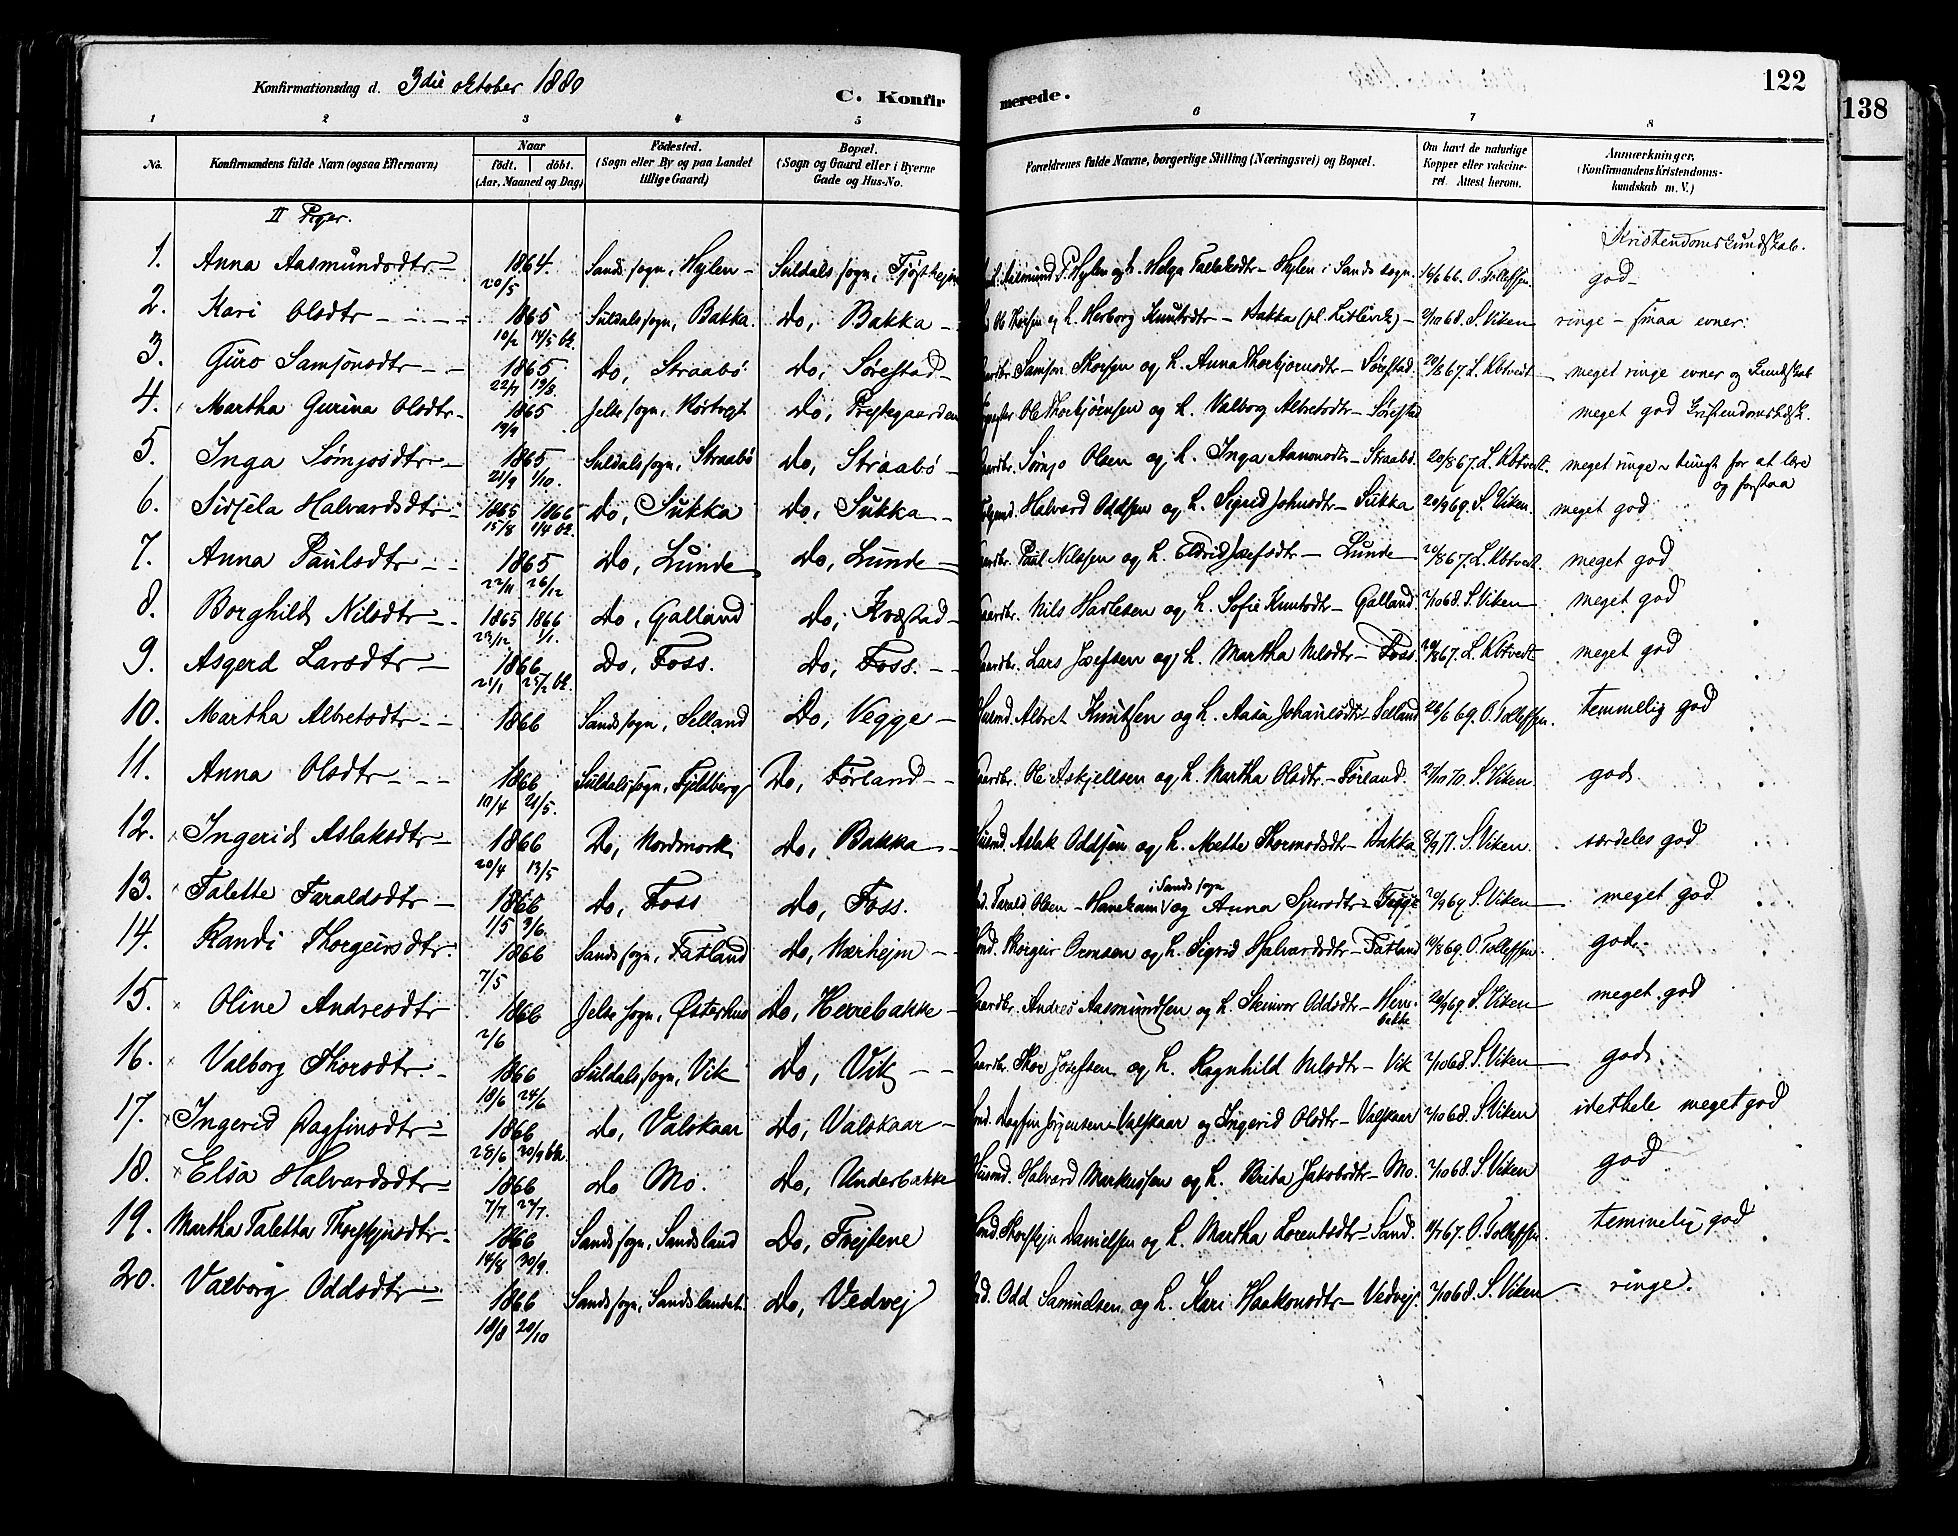 Konfirmationsdag d. 3die oktober 1880
C. Konfirmerede.
122
138
1 2 3 4 5 6 7 8
No. Konfirmandens fulde Navn (ogsaa Efternavn) Naar födt. döbt. (Aar, Maaned og Dag) Födested. (Sogn eller By og paa Landet tillige Gaard) Bopæl. (Sogn og Gaard eller i Byerne Gade og Hus-No. Forældrenes fulde Navne, borgerlige Stilling (Næringsvei) og Bopæl. Om havt de naturlige Kopper eller vakcineret. Attest herom. Anmærkninger. (Konfirmandens Kristendomskundskab m. V.)
II Piger. Kristendomskundskab.
1. Anna Aasmundsdtr 1864. 20/5 Sands sogn, Hylen Suldals sogn, Aasmund P. Hylen og h. Helga Hylen i Sands sogn. 16/6 66. O. Tollefsen. god
2. Kari Olsdtr 1865 10/2 14/5 Suldals sogn, Bakka. Do, Bakka Ole Thorsen og h. Herborg Knutsdtr Bakka 2/10 68. S. Viken ringe smaa evner.
3. Guro Samsonsdtr 1865 22/7 19/8. Do, Straabö Do, Sörestad Gaardbr. Samson Thorsen og h. Anna Thorbjornsdtr Sörestad. 20/8 67. meget ringe evner og Kundskab
4. Martha Gurina Olsdtr 1865 19/9 Jelse sogn, Do, Prestegaarden Ole Thorbjörnsen og h. Valborg Albretsdtr Sörestad meget god Kristendomskdsk.
5. Inga Sömjosdtr 1865 21/9 1/10. Suldals sogn, Straabö Do, Straabö Gaardbr. Sömjo Olsen og h. Inga Aanonsdtr Straabö. 20/8 67. meget ringe tungt for at lære og forstaa
6. Sissela Halvardsdtr 1865 15/8 1866 1/4 Do, Sukka Do, Sukka Halvard Oddsen og h. Sigrid Johnsdtr Sukka 20/9 69. S. Viken. meget god
7. Anna Paulsdtr 1865 22/11 26/12 Do, Lunde Do, Lunde Gaardbr. Paul Nilssen og h. Eldrid Josefsdtr Lunde 20/8 67. meget god
8. Borghild Nilsdtr 1865 23/12 1866 1/1. Do, Galland Do, Kvæstad Gaardbr. Nils Havlesen og h. Sofie Knutsdtr Galland 2/10 68. S. Viken meget god
9. Asgerd Larsdtr 1866 21/1 25/2 Do, Foss. Do, Foss. Gaardbr. Lars Josefsen og h. Martha Nilsdtr Foss. 20/8 67. meget god
10. Martha Albretsdtr 1866 Sands sogn, Selland Do, Vegge Husmd. Albret Knutsen og h. Aasa Johansdtr Selland 28/6 69. O. Tollefsen. temmelig god
11. Anna Olsdtr 1866 10/4 21/5. Suldals sogn, Fjeldberg Do, Førland Gaardbr. Ole Askjellsen og h. Martha Olsdtr Førland. 27/10 70. S. Viken. god.
12. Ingerid Aslaksdtr 1866 20/4 13/5 Do, Nordmork Do, Bakka Husmd. Aslak Oddsen og h. Mette Thormodsdtr Bakka 8/9 71. S. Viken. særdeles god
13. Talette Taraldsdtr 1866 1/5 9/6. Do, Foss Do, Foss. Tarald Olsen Hanekam i Sands sogn og Anna Sjursdtr 20/9 69 S. Viken meget god
14. Randi Thorgeirsdtr. 1866 7/5 Sands sogn, Fatland Do, Nærhejm Thorgeir Ormsen og h. Sigrid Halvardsdtr Fatland 19/8 69. O. Tollefsen. god.
15. Oline Andresdtr 1866 2/6 Jelse sogn, Østerhus Do, Herrebakke Gaardbr. Andres Aasmundsen og h. Steinvor Oddsdtr Herrebakke 20/9 69. S. Viken meget god
16. Valborg Thorsdtr. 1866 18/6 24/6 Suldals sogn, Vik Do, Vik Gaardbr. Thor Josefsen og h. Ragnhild Nilsdtr Vik 2/10 68. S. Viken god.
17. Ingerid Dagfinsdtr 1866 28/6 20/9 Do, Valskaar Do, Valskaar Dagfin Jörgensen Valskaar og Ingerid Olsdtr Valskaar 2/10 68. S. Viken idethele meget god
18. Elsa Halvardsdtr 1866 7/7 27/7. Do Mo. Do, Underbakke Husmd. Halvard Markussen og h. Brita Jakobsdtr Mo. 2/10 68. S. Viken god
19. Martha Taletta Thorstejnsdtr 1866 14/8 30/9. Sands sogn, Sandsland Do, Tvejtene Thorstejn Danielsen og h. Martha Lorentsdtr Sand. O. Tollefsen. temmelig god
20. Valborg Oddsdtr 1866 18/8 20/10 Sands sogn, Sandslandet. Do, Vedvej Odd Samuelsen og h. Kari Haakonsdtr Vedvej. 2/10 68. S. Viken ringe.